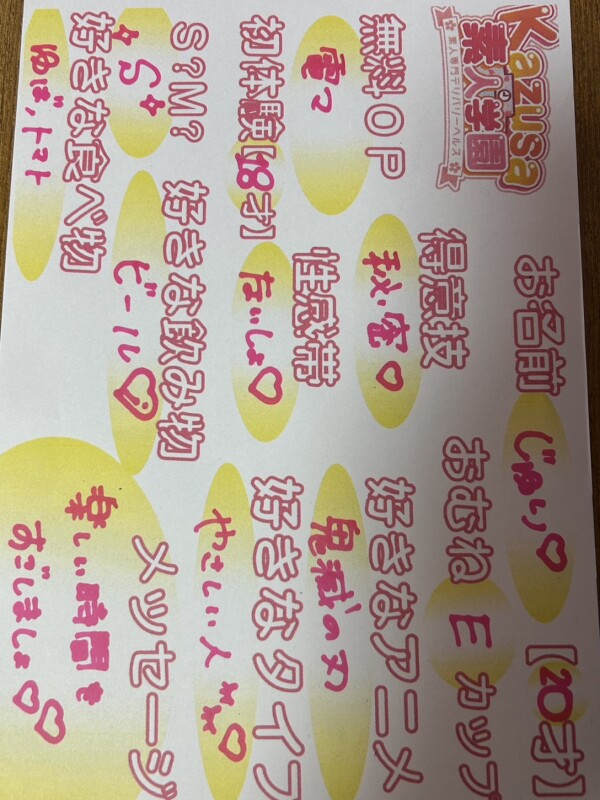 Kazusa
素人学園
素人専門デリバリーヘルス
お名前 じゅり♡ 【20才】
得意技 秘密♡
おむね E カップ
無料OP 電マ
好きなアニメ 鬼滅の刃
初体験【18才】
性感帯 ないしょ♡
好きなタイプ やさしい人♡
S?M? S
好きな飲み物 ビール♡
好きな食べ物 ゆば、トマト
メッセージ
楽しい時間を
すごしましょ♡♡